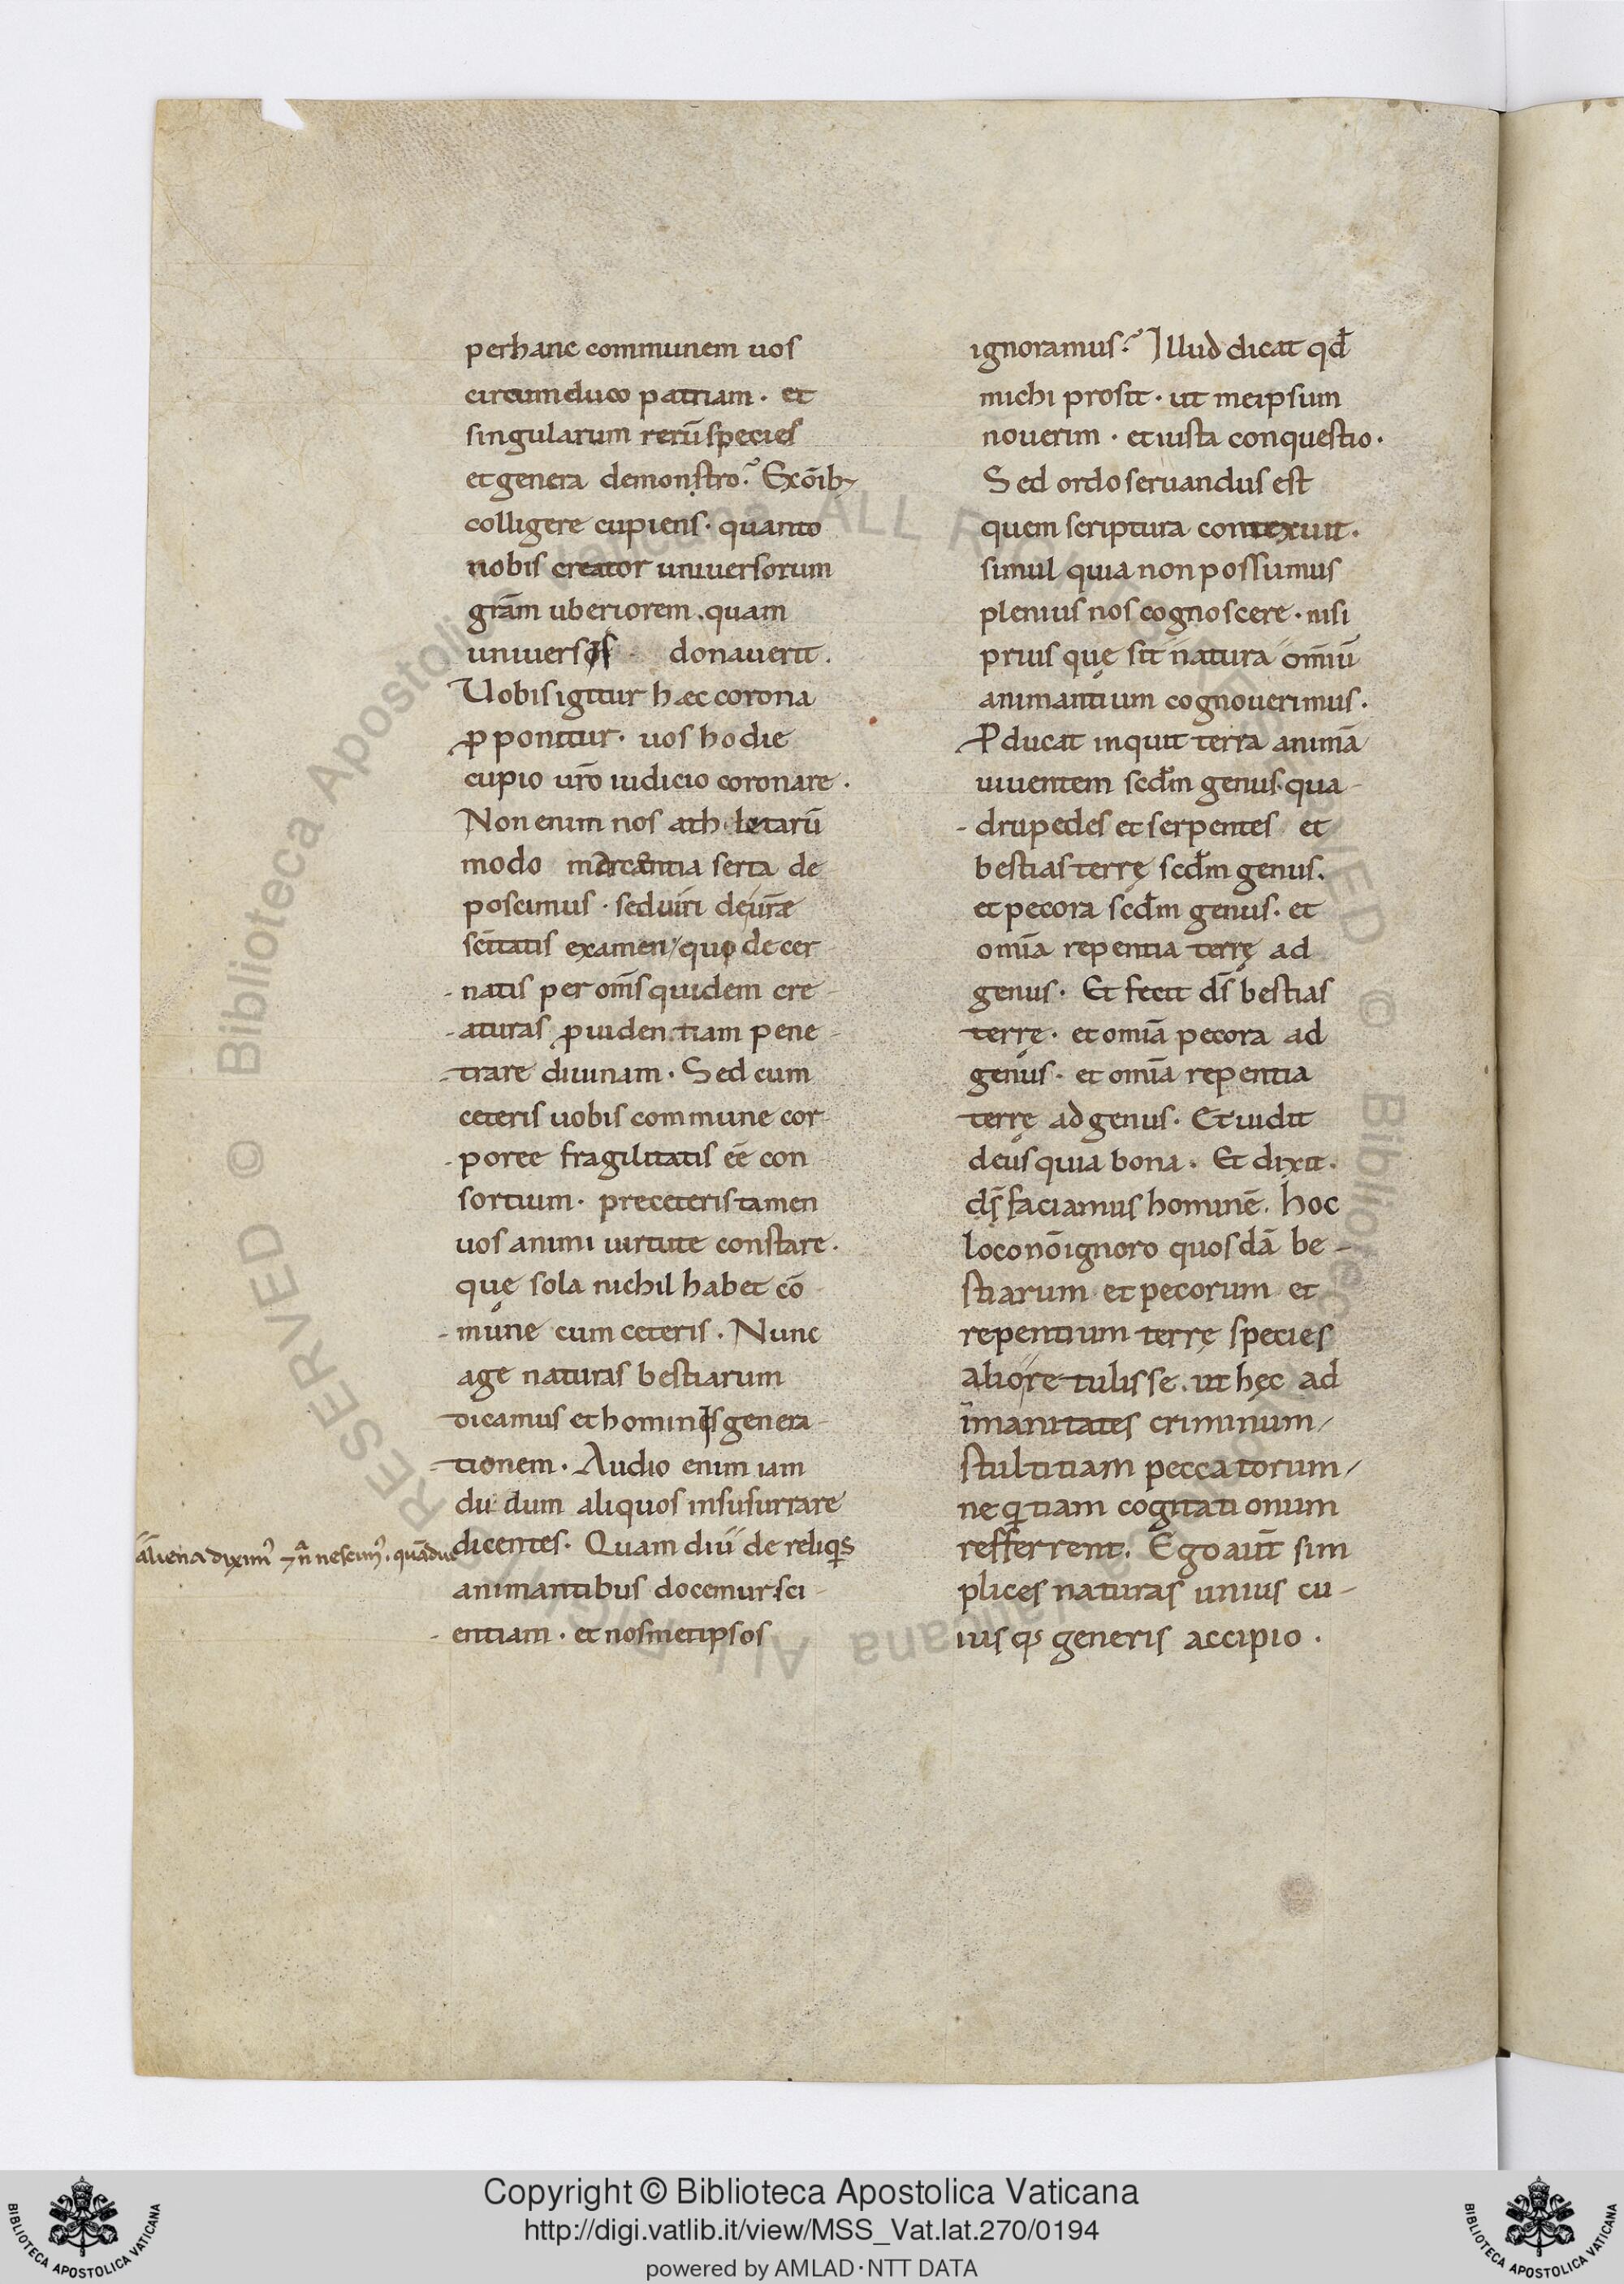 per hanc communem uos
circumduco patriam · et
singularum rerū species
et genera demonstro? Ex oīb;
colligere cupiens · quanto
nobis creator uniuersorum
grām uberiorem . quam
uniuersis donauerit .
Uobis igitur hæc corona
ꝓponitur · uos hodie
cupio ur̄o iudicio coronare .
Non enim nos athletarū
modo marcentia serta de
poscimus · sed uiri de ur̄æ
sc̄itatis examen / quo decer
- natis per om̄s quidem cre
- aturas ꝓuidentiam pene -
- trare diuinam · Sed cum
ceteris uobis commune cor
- poree fragilitatis eē con
sortium · pre ceteris tamen
uos animi uirtute constare ·
quę sola nichil habet cō
- mune cum ceteris . Nunc
age naturas bestiarum
dicamus et hominis genera -
- tionem · Audio enim iam
dudum aliquos insusurrare
dicentes · Quam diu de reliqs
animantibus docemur sci -
- entiam · et nosmetipsos
ignoramus? Illud dicat qd̄
michi prosit · ut meipsum
nouerim · et iusta conquestio ·
Sed ordo seruandus est
quem scriptura contexuit ·
simul quia non possumus
plenius nos cognoscere · nisi
prius quę sit natura om̄iū
animantium cognouerimus ·
Pducat inquit terra animā
uiuentem scd̄m genus · qua -
- drupedes et serpentes et
bestias terrę scd̄m genus .
et pecora scd̄m genus · et
omīa repentia terrę ad
genus · Et fecit ds̄ bestias
terrę · et omīa pecora ad
genus · et omīa repentia
terrę ad genus · Et uidit
deus quia bona . Et dixit .
ds̄ faciamus hominē . hoc
loco nō ignoro quosdā be -
stiarum et pecorum et
repentium terrę species
alio retulisse . ut hęc ad
īmanitates criminum /
stultitiam peccatorum /
neqtiam cogitationum
refferrent . Ego aut̄ sim
plices naturas unius cu -
ius qs generis accipio .
Copyright © Biblioteca Apostolica Vaticana
http://digi.vatlib.it/view/MSS_Vat.lat.270/0194
powered by AMLAD · NTT DATA